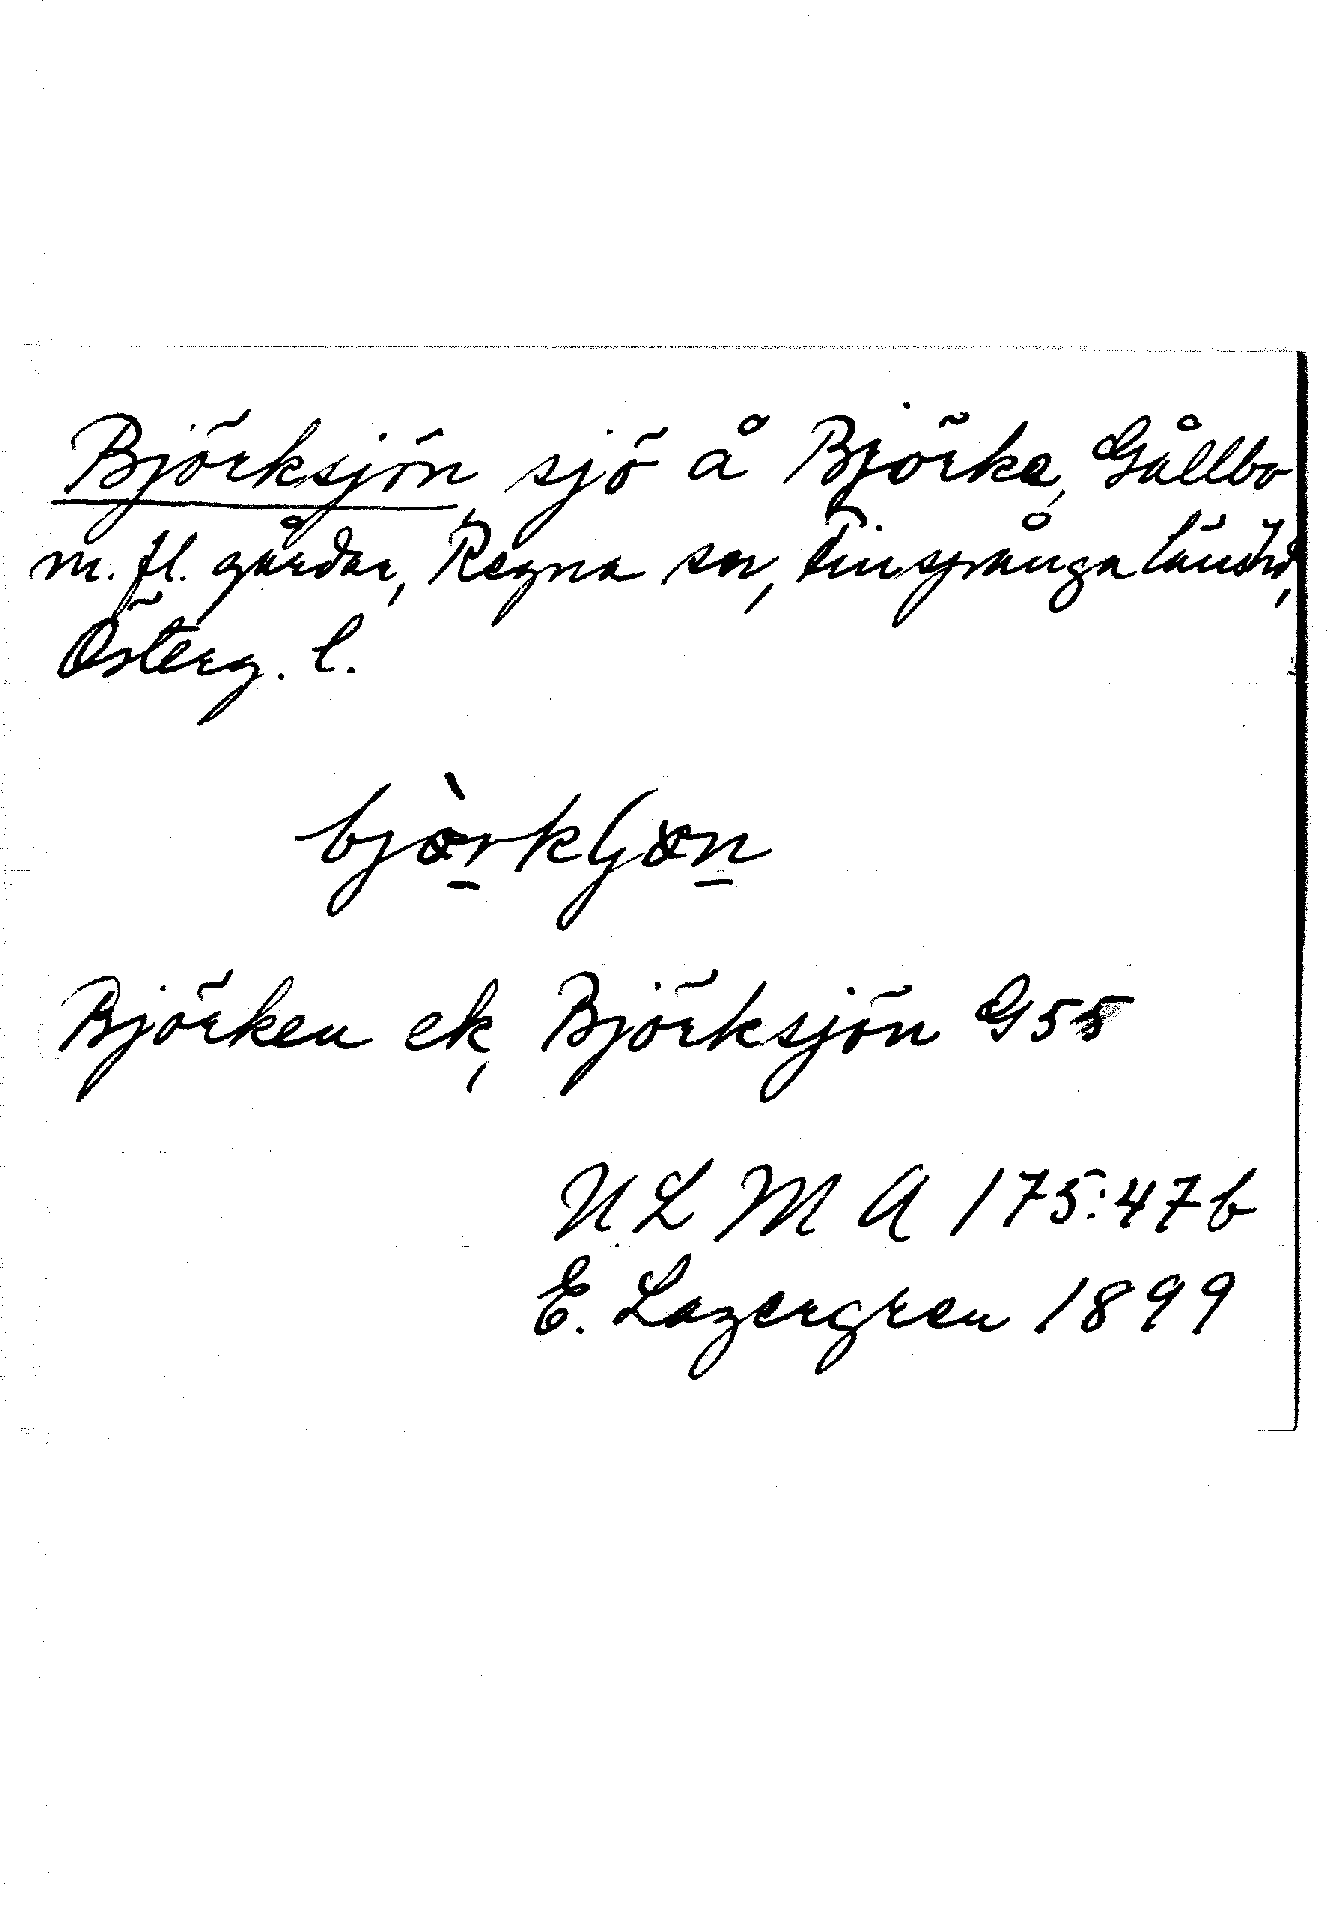 Björksjön, sjö å Björke, Gållbo
m. fl. gårdar, Regna sn, Finspånga länshd,
Österg. l.
Björken ek, Björksjön G55
ULMA 175:47b
E. Lagergren 1899